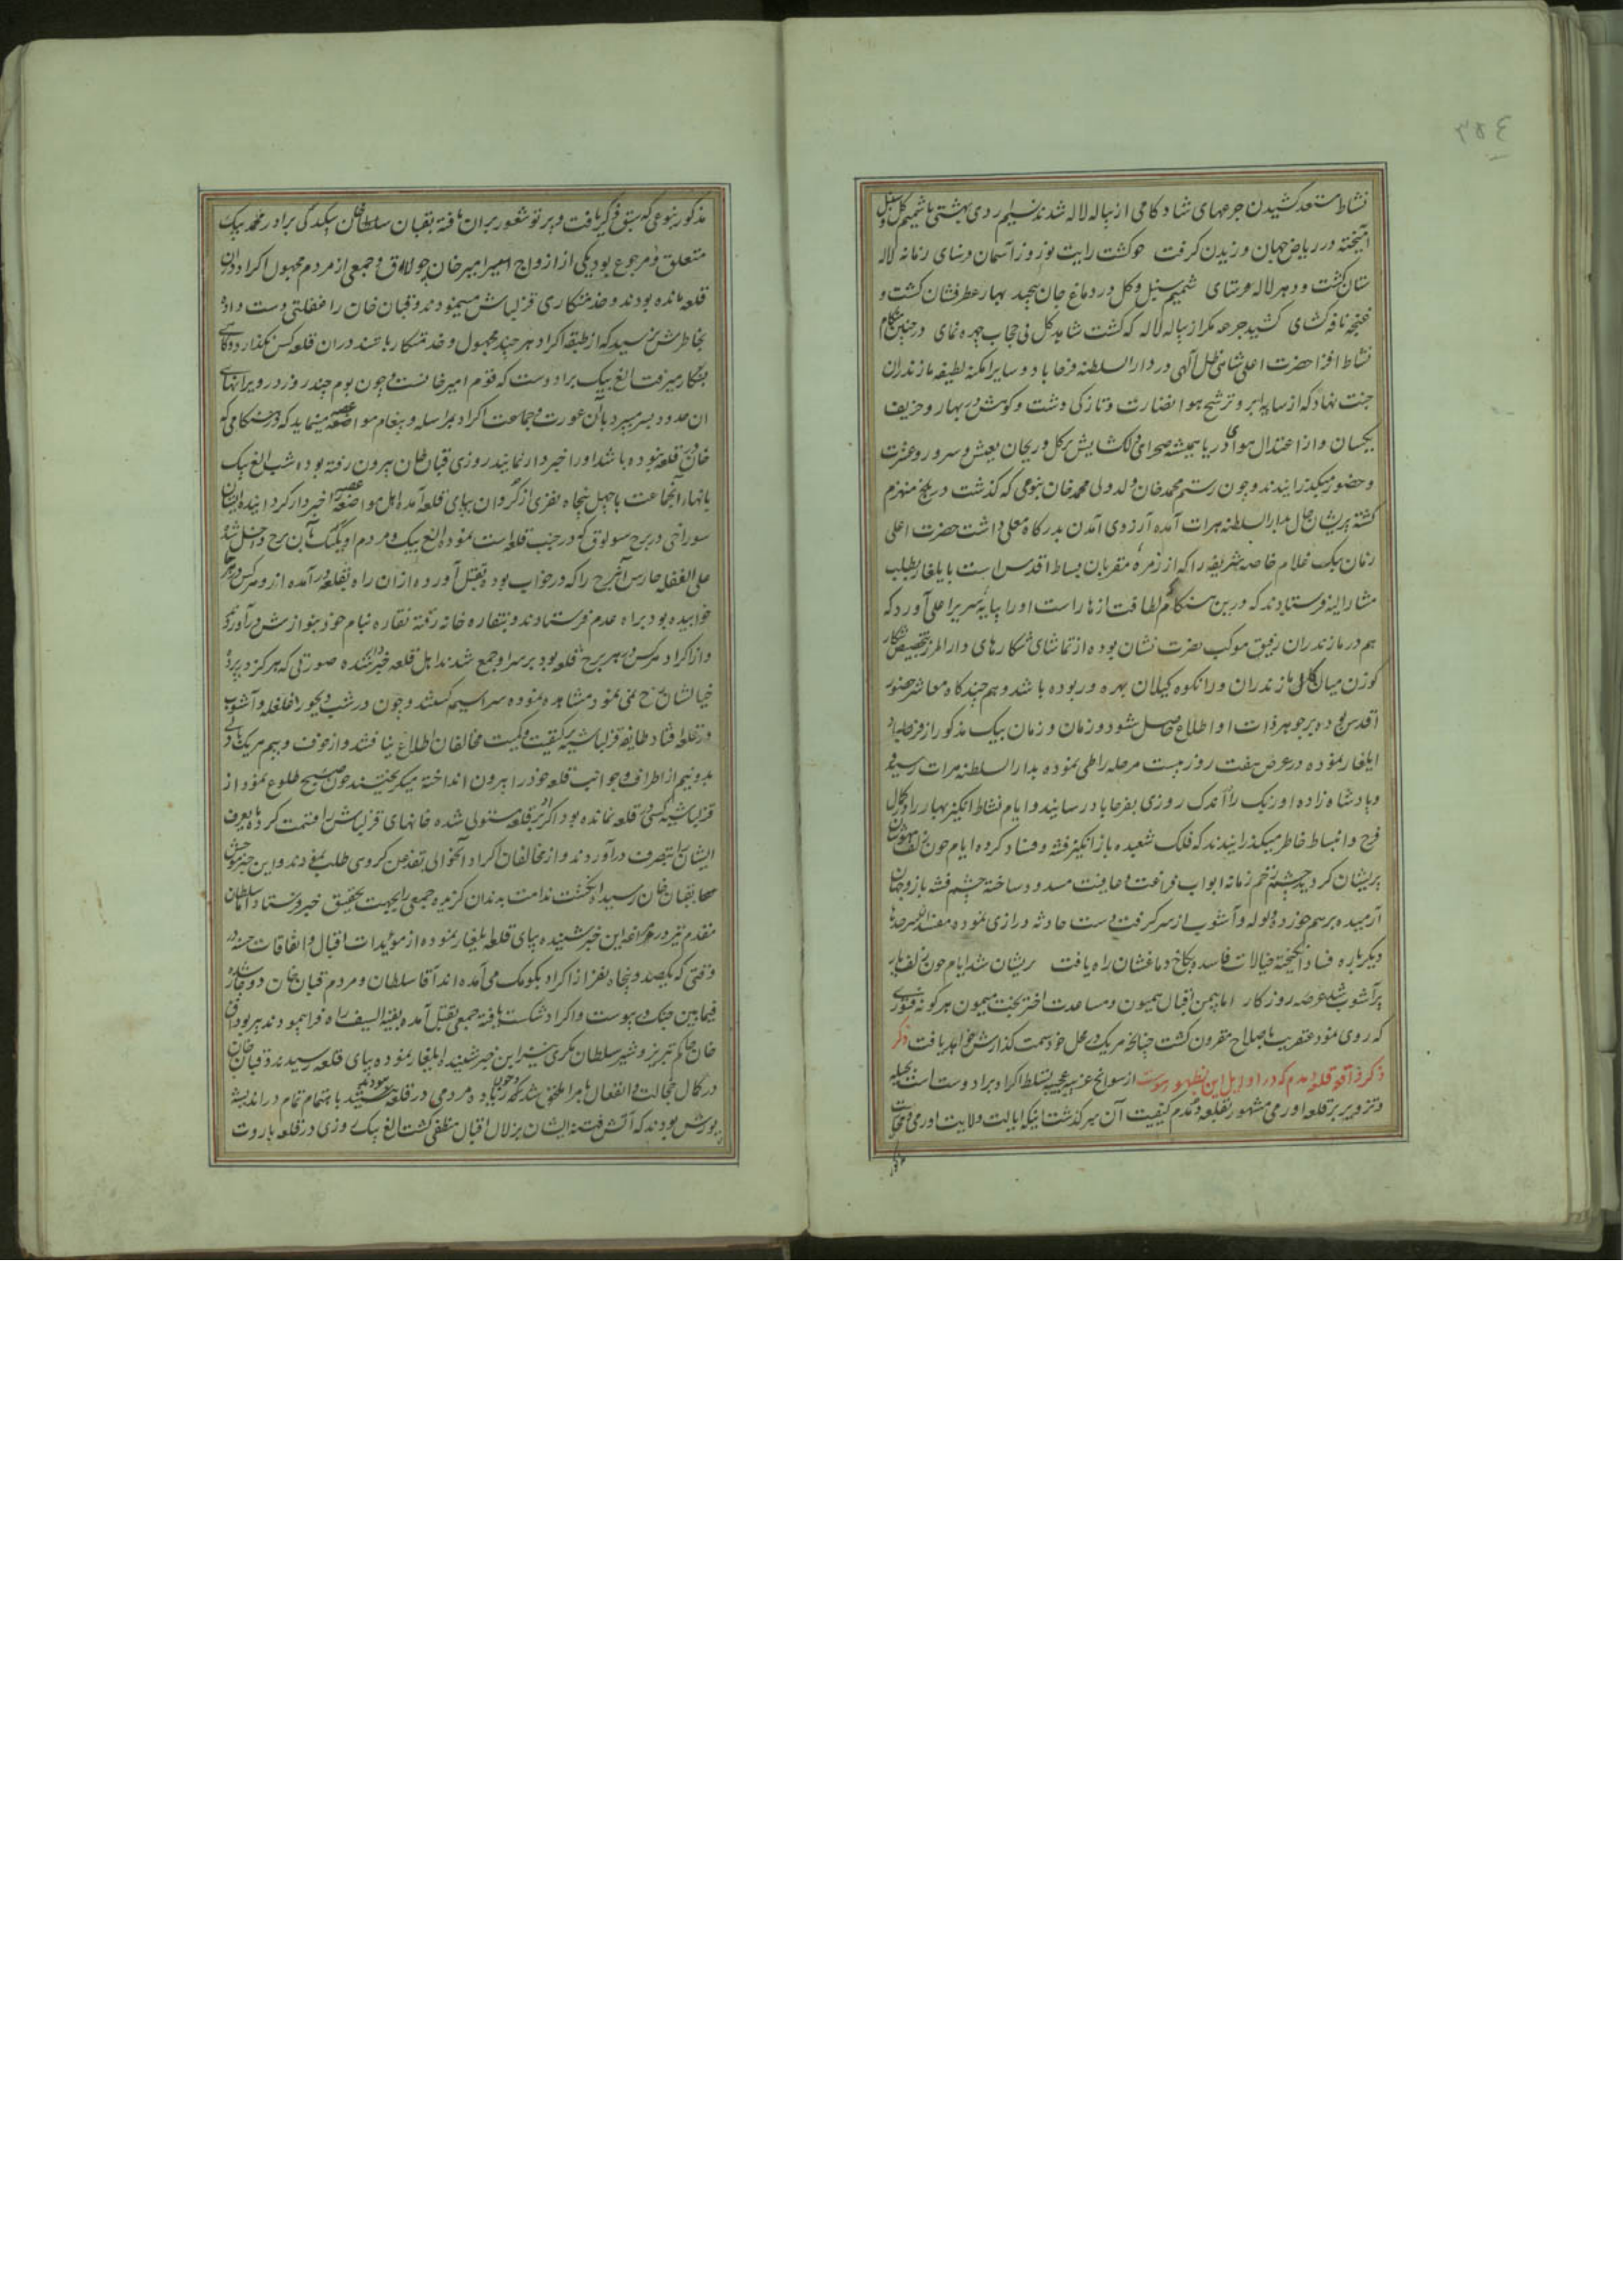 ٣٥٤
نشاط مستعد کشیدن جرعهای شادکامی از پیاله لاله شدند نسیم اردی بهشتی با شمیم گل و سنبل
آمیخته در ریاض جهان وزیدن گرفت چو گشت رایت نوروز آسمان فرسای زمانه لاله
ستان گشت و دهر لاله شمیم سنبل و گل در دماغ جان پیچید بهار عطرفشان گشت و
غنچه نافه گشای کشید جرعه مگر از پیاله لاله که گشت شاهد گل بی حجاب چهره نمای در چنین هنگام
نشاط افزا حضرت اعلی شاهی ظل الهی در دار السلطنه فرحاباد و سایر امکنه لطیفه مازندران
جنت نهاد که از سایه ابر و ترشح هوا نضارت و تازگی دشت و کوهش در بهار و خریف
یکسان و از اعتدال هوای دریا همیشه صحرای دلگشایش پر گل و ریحان بعیش و سرور و عشرت
و حضور میگذرانیدند و چون رستم محمد خان ولد ولی محمد خان بنوعی که گذشت در بلخ منهزم
گشته پریشان حال بدار السلطنه هرات آمده آرزوی آمدن بدرگاه معلی داشت حضرت اعلی
زمان بیک غلام خاصه شریفه را که از زمره مقربان بساط اقدس است بایلغار بطلب
مشارالیه فرستادند که درین هنگام که لطافت ازهار است او را بپایه سریر اعلی آورد که
هم در مازندران رفیق موکب نصرت نشان بوده از تماشای شکارهای دار المرز بتخصیص شکار
گوزن میان کاله مازندران و رانکوه گیلان بهره ور بوده باشد و هم چند گاه معاشر حضور
اقدس بوده بر جوهر ذات او اطلاع حاصل شود و زمان بیک مذکور از فرحاباد
ایلغار نموده در عرض هفت روز بیست مرحله را طی نموده بدار السلطنه هرات رسید
و پادشاه زاده اوزبک را اندک روزی بفرحاباد رسانید و ایام نشاط انگیز بهار را در کمال
فرح و انبساط خاطر میگذرانیدند که فلک شعبده باز انگیز فتنه و فساد کرده ایام چون زلف مهوشان
پریشان گردید چشم زخم زمانه ابواب فراغت و عافیت مسدود ساخته چشم فتنه باز و جهان
آرمیده برهم خورد ولوله و آشوب از سر گرفت دست حادثه درازی نموده مفسدان سرحدها
دیگر باره فساد انگیخته خیالات فاسد بکاخ دماغشان راه یافت پریشان شد ایام چون زلف یار
پر آشوب شد عرصه روزگار اما بیمن اقبال همیون و مساعدت اختر بخت میمون هر گونه فتوری
که روی نمود عنقریب باصلاح مقرون گشت چنانچه هر یک در محل خود سمت گذارش خواهد یافت ذکر
ذکر قلعه دمدم که در اوایل این بظهور پیوست از سوانح غریبه عجیبه تسلط اکراد برادوست است بحیله
و تزویر بر قلعه اورمی مشهور بقلعه دمدم کیفیت آن سرگذشت اینکه ایالت ولایت اورمی و محالات
مذکور بنوعی که سبق ذکر یافت و پرتو شعور بران تافته بقبان سلطان بیگدلی برادر محمد بیک
متعلق و مرجوع بود یکی از ازواج امیر خان چولاق و جمعی از مردم مجهول اکراد دران
قلعه مانده بودند و خدمتکاری قزلباش مینمودند و قبان خان را غفلتی دست داد
بخاطرش نرسید که از طبقه اکراد هر چند مجهول و خدمتکار باشند دران قلعه کس نگذارد و گاهی
بشکار میرفت الغ بیک برادوست که قوم امیر خانست و چون بوم چند روز در ویرانهای
ان حدود بسر میبرد با آن عورت و جماعت اکراد بمراسله و پیغام مواضعه مینماید که در هنگامی که
خان در قلعه نبوده باشد او را خبردار نمایند روزی قبان خان بیرون رفته بود شب الغ بیک
بانهاء آنجماعت با چهل پنجاه نفری از کردان بپای قلعه آمده اهل مواضعه را خبردار گردانیده ایشان
سوراخی در برج سولوق که در جنب قلعه است نموده الغ بیک و مردم او یکیک بآن برج داخل شده
علی الغفله حارس آنبرج را که در خواب بود بقتل آورده ازان راه بقلعه درآمده از و هر کس در هر جا
خوابیده بود براه عدم فرستادند و بنقاره خانه رفته نقاره بنام خود بنوازش درآوردند
و از اکراد هر کس در هر برج قلعه بود بر سر او جمع شدند اهل قلعه خبردار شده صورتی که هرگز در پرده
خیالشان رخ نمی نمود مشاهده نموده سراسیمه گشتند و چون در شب دیجور غلغله و آشوب
در قلعه افتاد طایفه قزلباشیه بر کیفیت و کمیت مخالفان اطلاع نیافتند و از خوف و بیم هر یک با دلی
بدو نیم از اطراف و جوانب قلعه خود را بیرون انداخته میگریختند چون صبح طلوع نمود از
قزلباشیه کسی در قلعه نمانده بود اکراد بر قلعه مستولی شده خانهای قزلباش را قسمت کرده بتصرف
ایشان بتصرف درآوردند و از مخالفان اکراد آنحوالی بقدغن گروهی طلب نمودند و این خبر موحش
صحابقبان خان رسید انگشت ندامت بدندان گزیده جمعی را بجهت تحقیق خبر فرستاد آقا سلطان
مقدم نیز در مراغه این خبر شنیده بپای قلعه ایلغار نموده از مؤیدات اقبال و اتفاقات حسنه در
وقتی که یکصد و پنجاه نفر از اکراد بکومک می آمده اند آقا سلطان و مردم قبان خان دوچار شده
فیمابین جنگ در پیوست و اکراد شکست یافته جمعی بقتل آمده بقیه السیف راه فرار پیمودند پیربوداق
خان حاکم تبریز و شیر سلطان مکری نیز این خبر شنیده ایلغار نموده بپای قلعه رسیدند و قبان خان
در کمال خجالت و انفعال بامرا ملحق شد که چون زیاده مردمی در قلعه نبود باهتمام تمام در اندیشه
یورش بودند که آتش فتنه ایشان بزلال اقبال منطفی گشت الغ بیک روزی در قلعه باروت